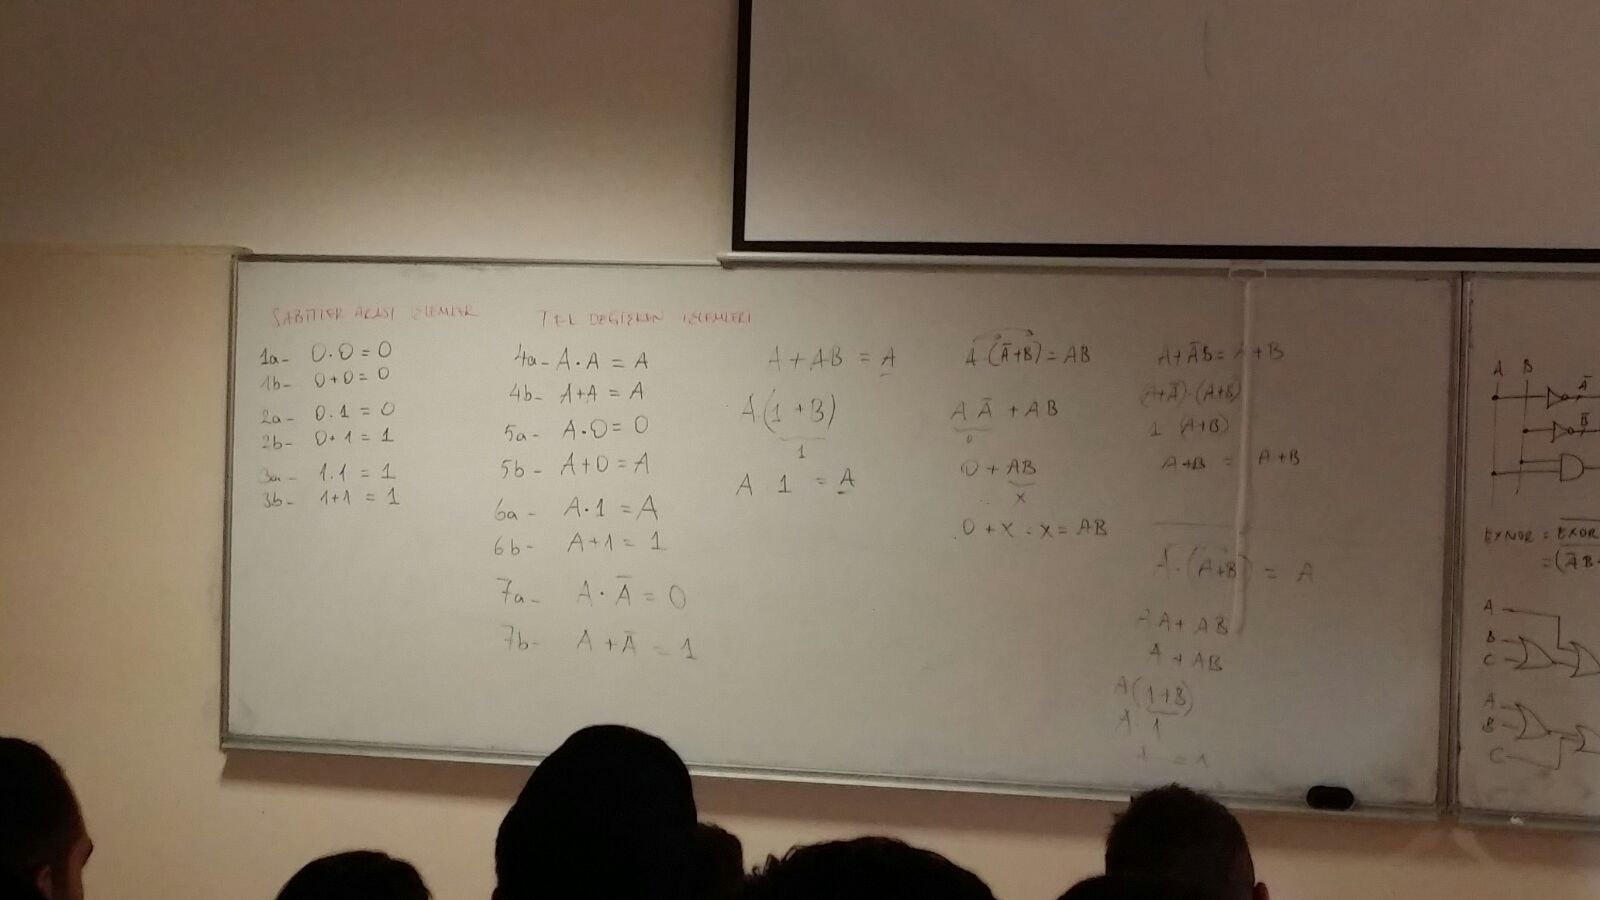 SABİTLER ARASI İŞLEMLER
1a- 0.0 = 0
1b- 0+0 = 0
2a- 0.1 = 0
2b- 0+1 = 1
3a- 1.1 = 1
3b- 1+1 = 1
TEK DEĞİŞKEN İŞLEMLERİ
4a- A·A = A
4b- A+A = A
5a- A·0 = 0
5b- A+0 = A
6a- A·1 = A
6b- A+1 = 1
7a- A·A̅ = 0
7b- A+A̅ = 1
A + AB = A
A(1+B)
1
A 1 = A
A·(A̅+B) = AB
AA̅ + AB
0
0 + AB
x
0 + x = x = AB
A+A̅B = A+B
(A+A̅)·(A+B)
1 (A+B)
A+B = A+B
A·(A+B) = A
AA + AB
A + AB
A(1+B)
A·1
A B
A̅
B̅
EXNOR = EXOR
= (A̅B
A
B
C
A
B
C